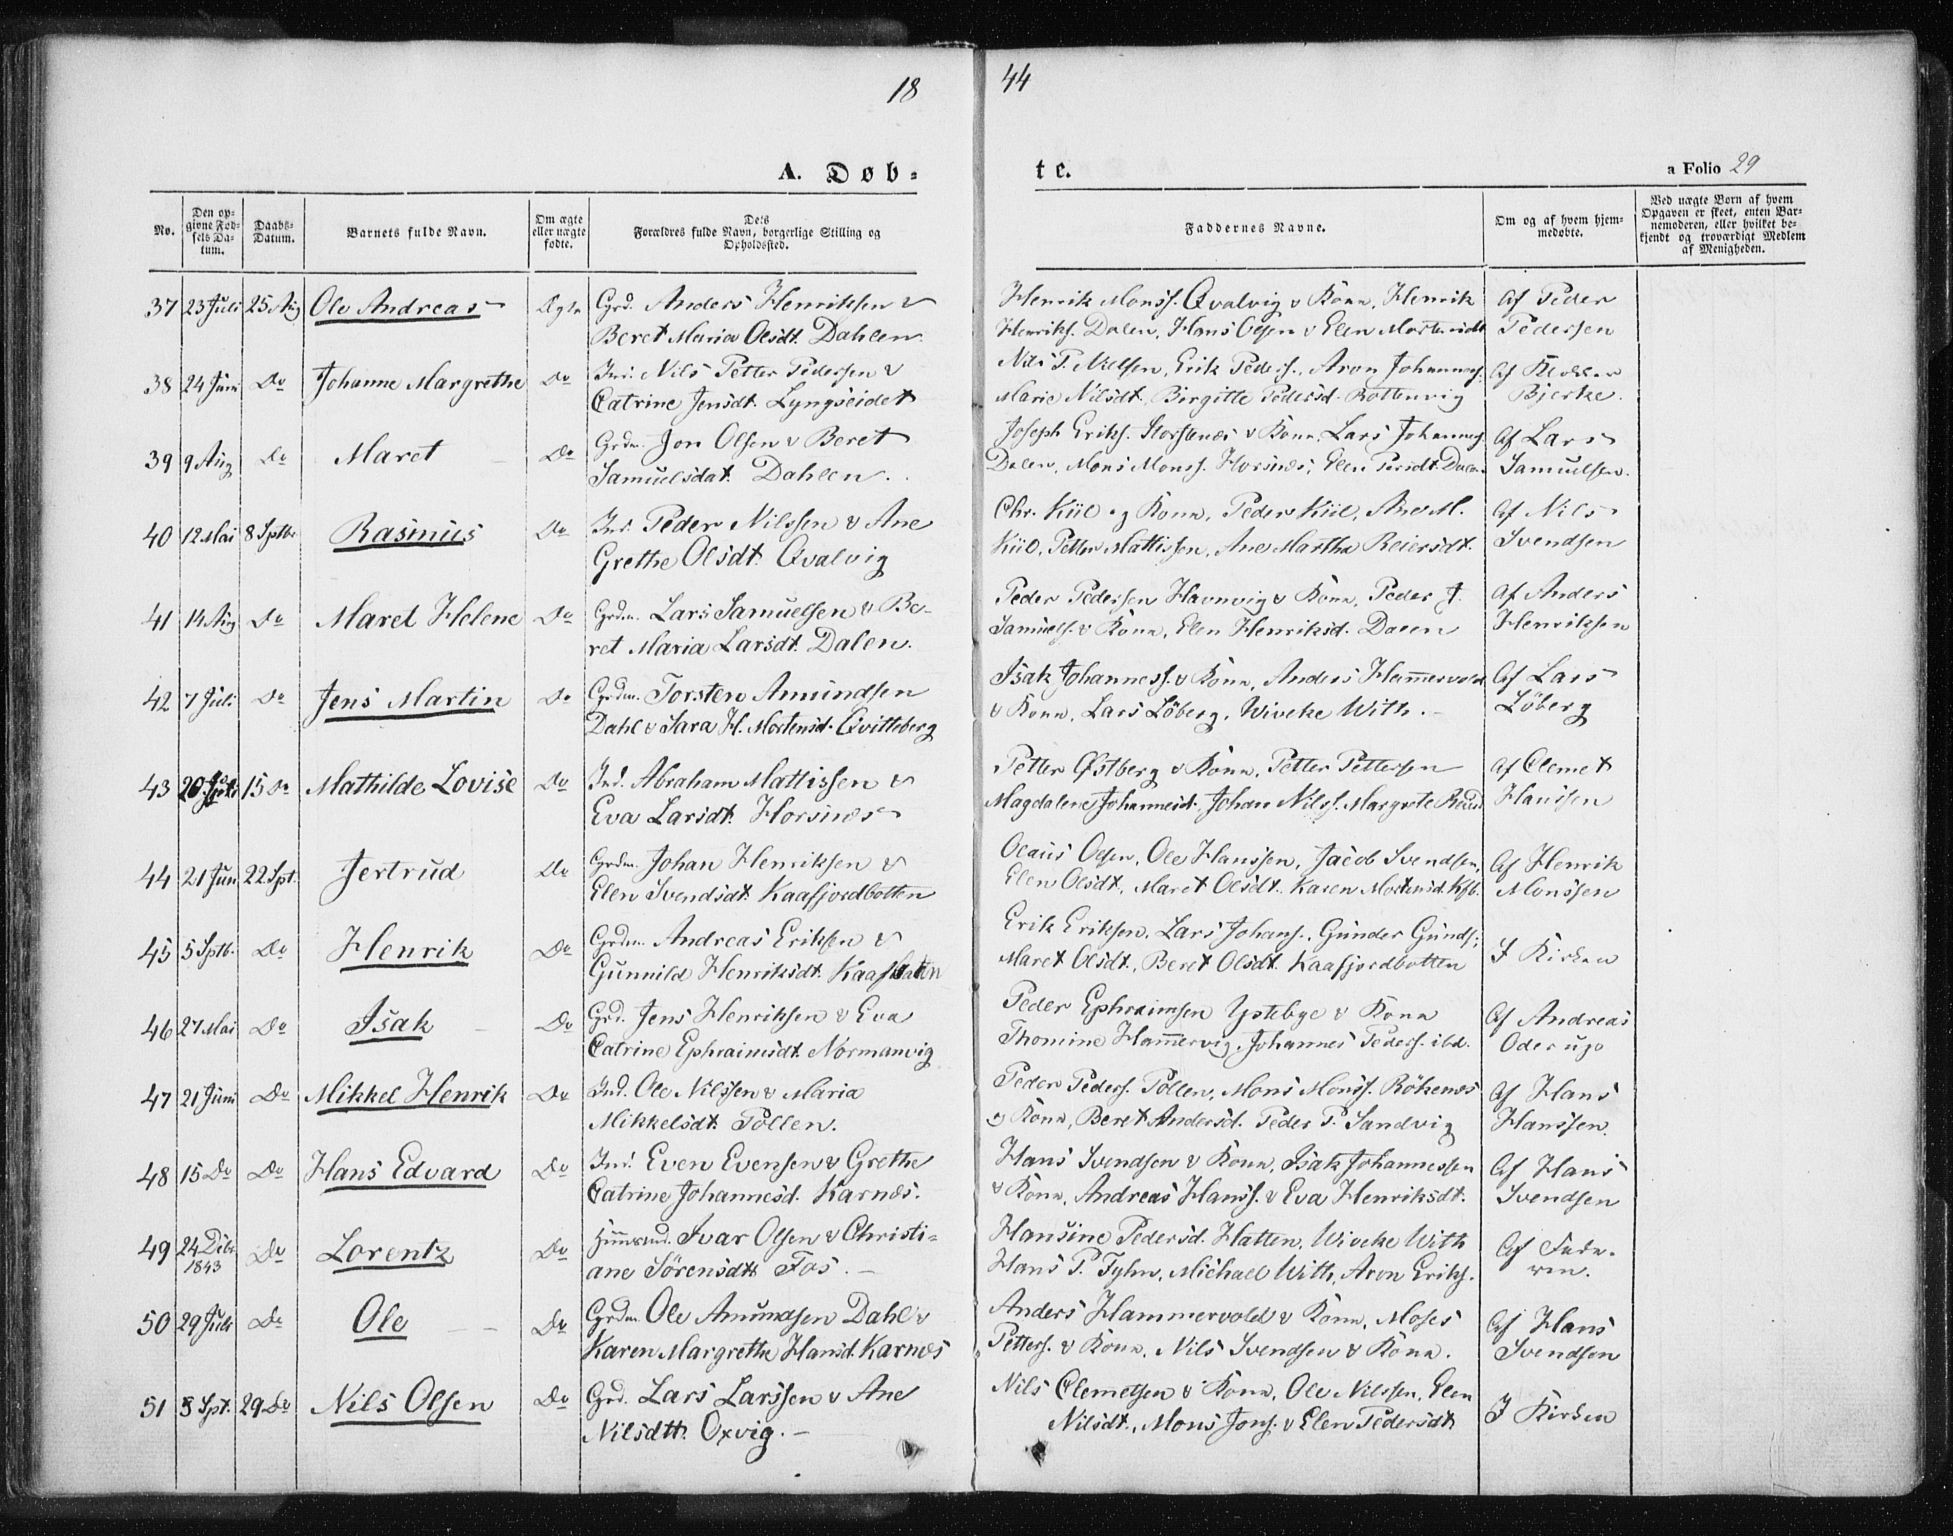 18
44
A. Døb-
te.
a Folio 29
No.
Den op-
givne Fød-
sels Da-
tum.
Daabs-
Datum.
Barnets fulde Navn.
Om ægte
eller uægte
fødte.
Dets
Forældres fulde Navn, borgerlige Stilling og
Opholdssted.
Faddernes Navne.
Om og af hvem hjem-
medøbte.
Ved uægte Born af hvem
Opgaven er skeet, enten Bar-
nemoderen, eller hvilket be-
kjendt og troværdigt Medlem
af Menigheden.
37 23 Juli 25 Aug Ole Andreas Ægte Grd. Anders Henriksen &
Beret Maria Olsdt. Dahlen
Henrik Monss. Qvalvig & Kona, Henrik
Henriks. Dalen, Hans Olsen & Elen Mortensdt.
Af Peder
Pedersen
38 24 Juni Do Johanne Margrethe Do Ind. Nils Petter Pedersen &
Catrine Jensdt. Lyngseidet
Nils P. Nielsen, Erik Peders., Aron Johannes.
Marie Nilsdt. Birgitte Pedersd. Rottenvig
Af
Bjerke.
39 9 Aug Do Maret Do Grdm. Jon Olsen & Beret
Samuelsdat. Dahlen.
Joseph Eriks. Horsnæs & Kona, Lars Johannes.
Dalen, Mons Monss. Horsnæs, Elen Persdt. Dalen
Af Lars
Samuelsen.
40 12 Mai 8 Septbr Rasmus Do Ind. Peder Nilssen & Ane
Grethe Olsdt. Qvalvig
Chr. Kiil og Kona, Peder Kiil, Ane M.
Kiil, Petter Mattissen, Ane Martha Reiersdt.
Af Nils
Svendsen
41 14 Aug Do Maret Helene Do Grdm. Lars Samuelsen & Be-
ret Maria Larsdt. Dalen.
Peder Pedersen Havnvig & Kona, Peder J.
Samuels. & Kona, Elen Henriksd. Dalen
Af Anders
Henriksen
42 7 Juli Do Jens Martin Do Grdm. Torsten Amundsen
Dahl & Sara H. Mortensd. Qvitteberg
Isak Johanness. & Kona, Anders Hammervold
& Kona, Lars Löberg, Wiveke With.
Af Lars
Löberg
43 20 15 Do Mathilde Lovise Do Ind. Abraham Mattissen &
Eva Larsdt. Horsnæs
Petter Østberg & Kona, Petter Pettersen
Magdalene Johannesd., Johan Nilss. Margrete
Af Clemet
Hanssen
44 21 Jun 22 Spt. Jertrud Do Grdm. Johan Henriksen &
Elen Svendsdt. Kaafjordbotten
Olaus Olsen, Ole Hanssen, Jacob Svendsen,
Elen Olsdt., Maret Olsdt. Karen Mortensd. Kfb.
Af Henrik
Monssen
45 5 Sptb. Do Henrik Do Grdm. Andreas Eriksen &
Gunnild Henriksdt.
Erik Eriksen, Lars Johans., Gunder Gunds.;
Maret Olsdt., Beret Olsdt. Kaafjordbotten
I Kirken
46 27 Mai Do Isak Do Grd. Jens Henriksen & Eva
Catrine Ephraimsdt. Normanvig
Peder Ephraimsen Ystebye & Kona
Thomine Hammervig, Johannes Peders. ibd.
Af Andreas
47 21 Juni Do Mikkel Henrik Do Ind. Ole Nilssen & Maria
Mikkelsdt. Pollen.
Peder Peders. Pollen, Mons Monss. Rökenæs
& Kona, Beret Andersd. Peder P. Sandvig
Af Hans
Hanssen.
48 15 Do Do Hans Edvard Do Ind. Even Evensen & Grethe
Catrine Johannesd. Karnæs.
Hans Svendsen & Kona, Isak Johannessen
& Kona, Andreas Hanss. & Eva Henriksdt.
Af Hans
Svendsen
49 24 Dcbr 1843 Do Lorentz Do Huusmd. Ivar Olsen & Christi-
ane Sörensdtr Fos.
Hansine Pedersd. Hatten, Wiveke With
Hans P. Fyhn, Michael With, Aron Eriks.
Af Fade-
ren.
50 29 Juli Do Ole Do Grdm. Ole Amundsen Dahl &
Karen Margrethe Hansd. Karnæs
Anders Hammervold & Kona, Moses
Petters. & Kona. Nils Svendsen & Kona.
Af Hans
Svendsen
51 5 Spt. 29 Do Nils Olsen Do Grd. Lars Larssen & Ane
Nilsdtr. Oxvig.
Nils Clemetsen & Kona, Ole Nilssen, Elen
Nilsdt., Mons Jons. & Elen Pedersdt
I Kirken